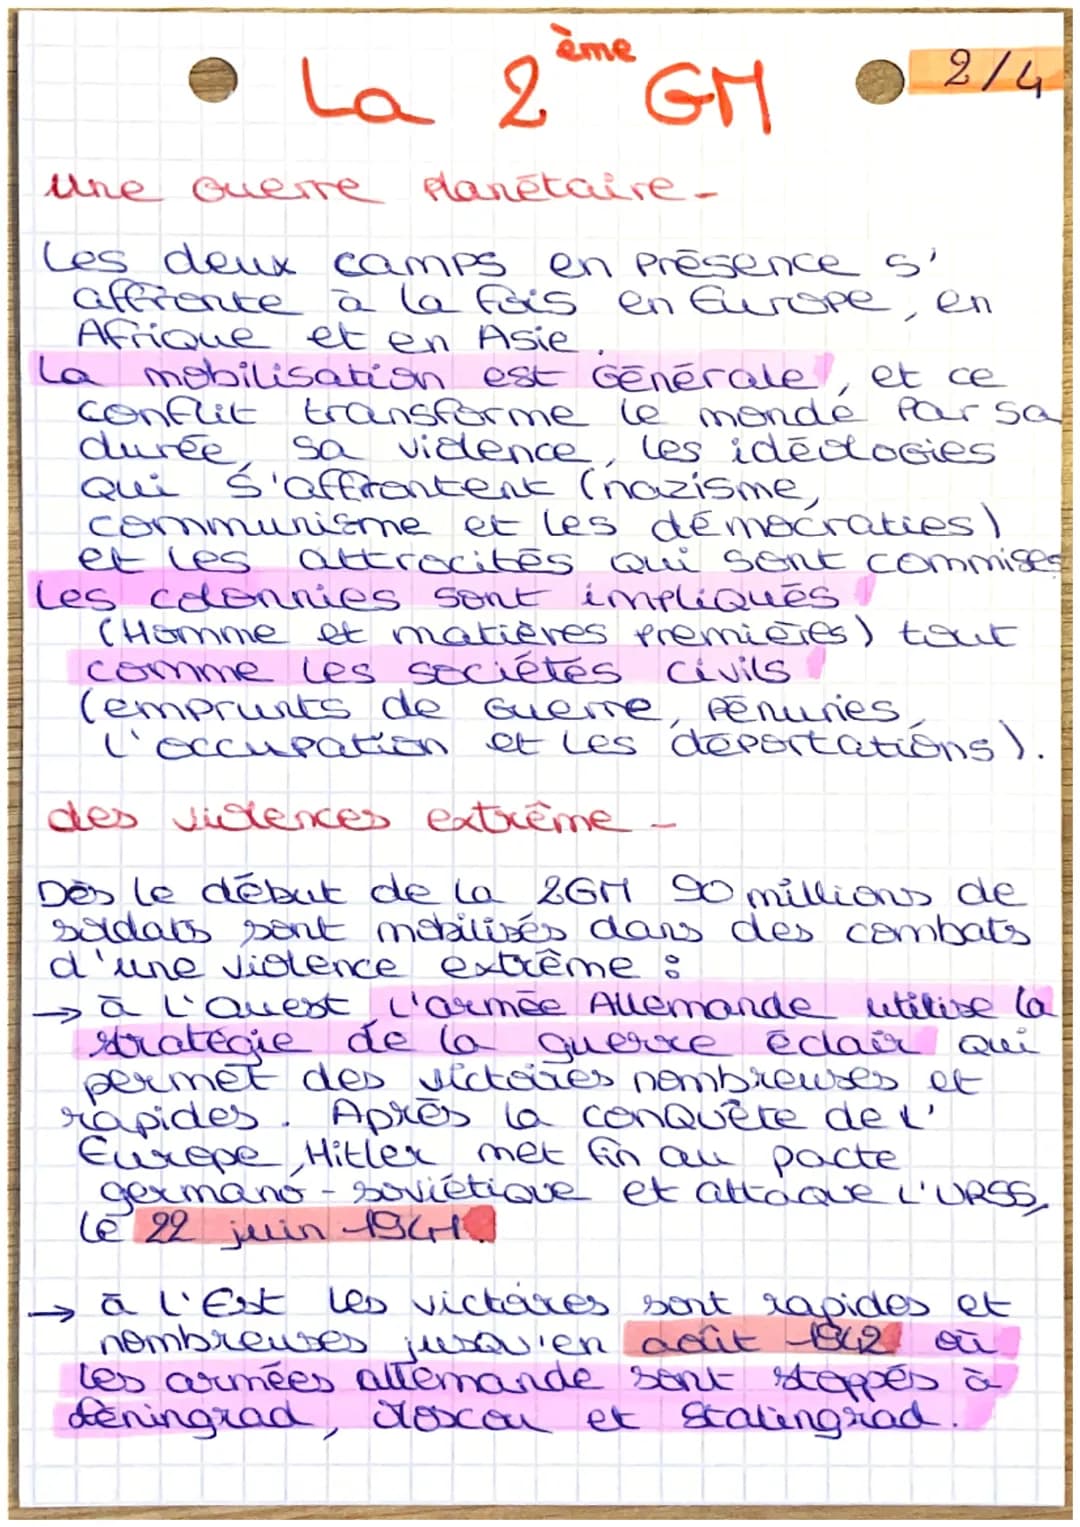 La 2ème GM
2/4
une Guerre Planétaire-
Les deux camps en Présence s'
affronte à la fois en Europe, en
Afrique et en Asie.
La mobilisation est Générale, et ce
conflit transforme le monde Par sa
durée, sa violence, les idéologies
qui s'affrontent (nazisme,
communisme et les démocraties)
et les attrocités qui sont commises
Les colonnies sont impliqués
(Homme et matières Premières) tout
comme les sociétés civils
(emprunts de Guerre, Pénuries,
l'occupation et les déportations).
des violences extrême -
Dès le début de la 2GM 90 millions de
soldats sont mobilisés dans des combats
d'une violence extrême :
→ à l'Ouest l'armée Allemande utilise la
stratégie de la guerre éclair qui
permet des victoires nombreuses et
rapides. Après la conquête de l'
Europe, Hitler met fin au pacte
germano-soviétique et attaque l'URSS,
le 22 juin 1941.
→ à l'Est les victoires sont rapides et
nombreuses jusqu'en août 1942 où
les armées allemande sont stoppés à
Léningrad, Moscou et Stalingrad.